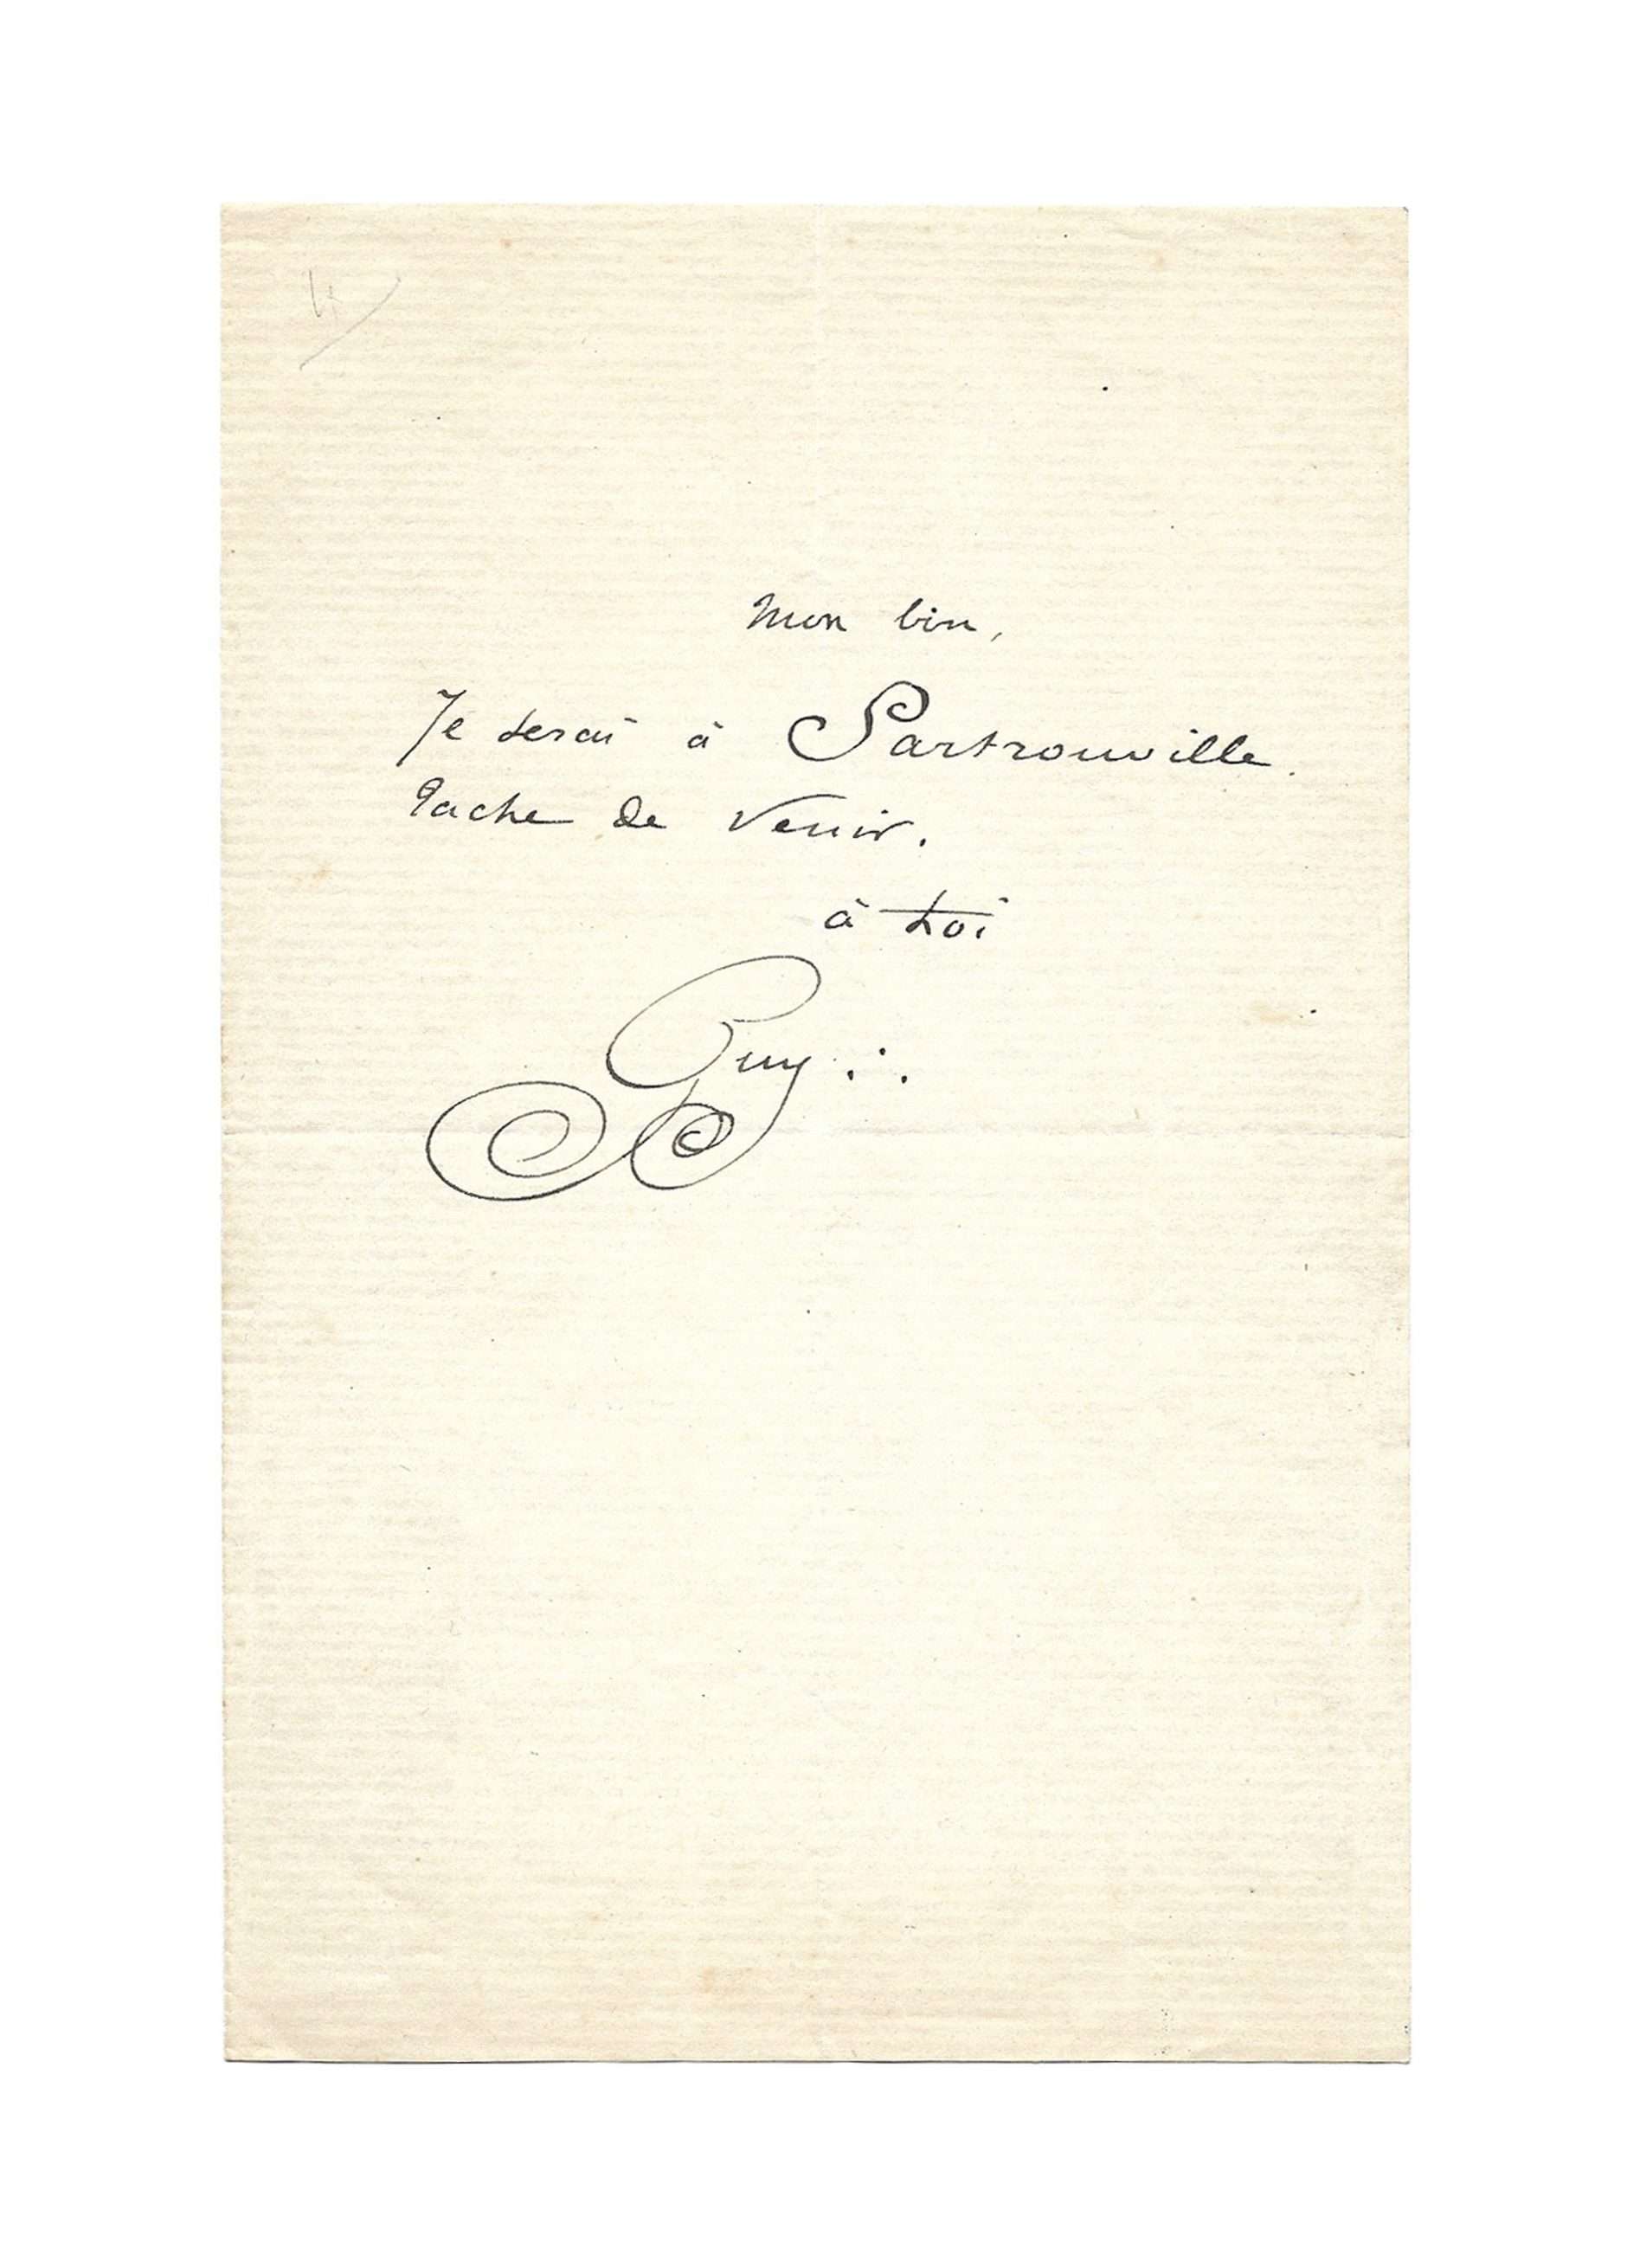 4
Mon bin,
Je serai à Sartrouville.
Tache de venir.
à toi
Guy ∴